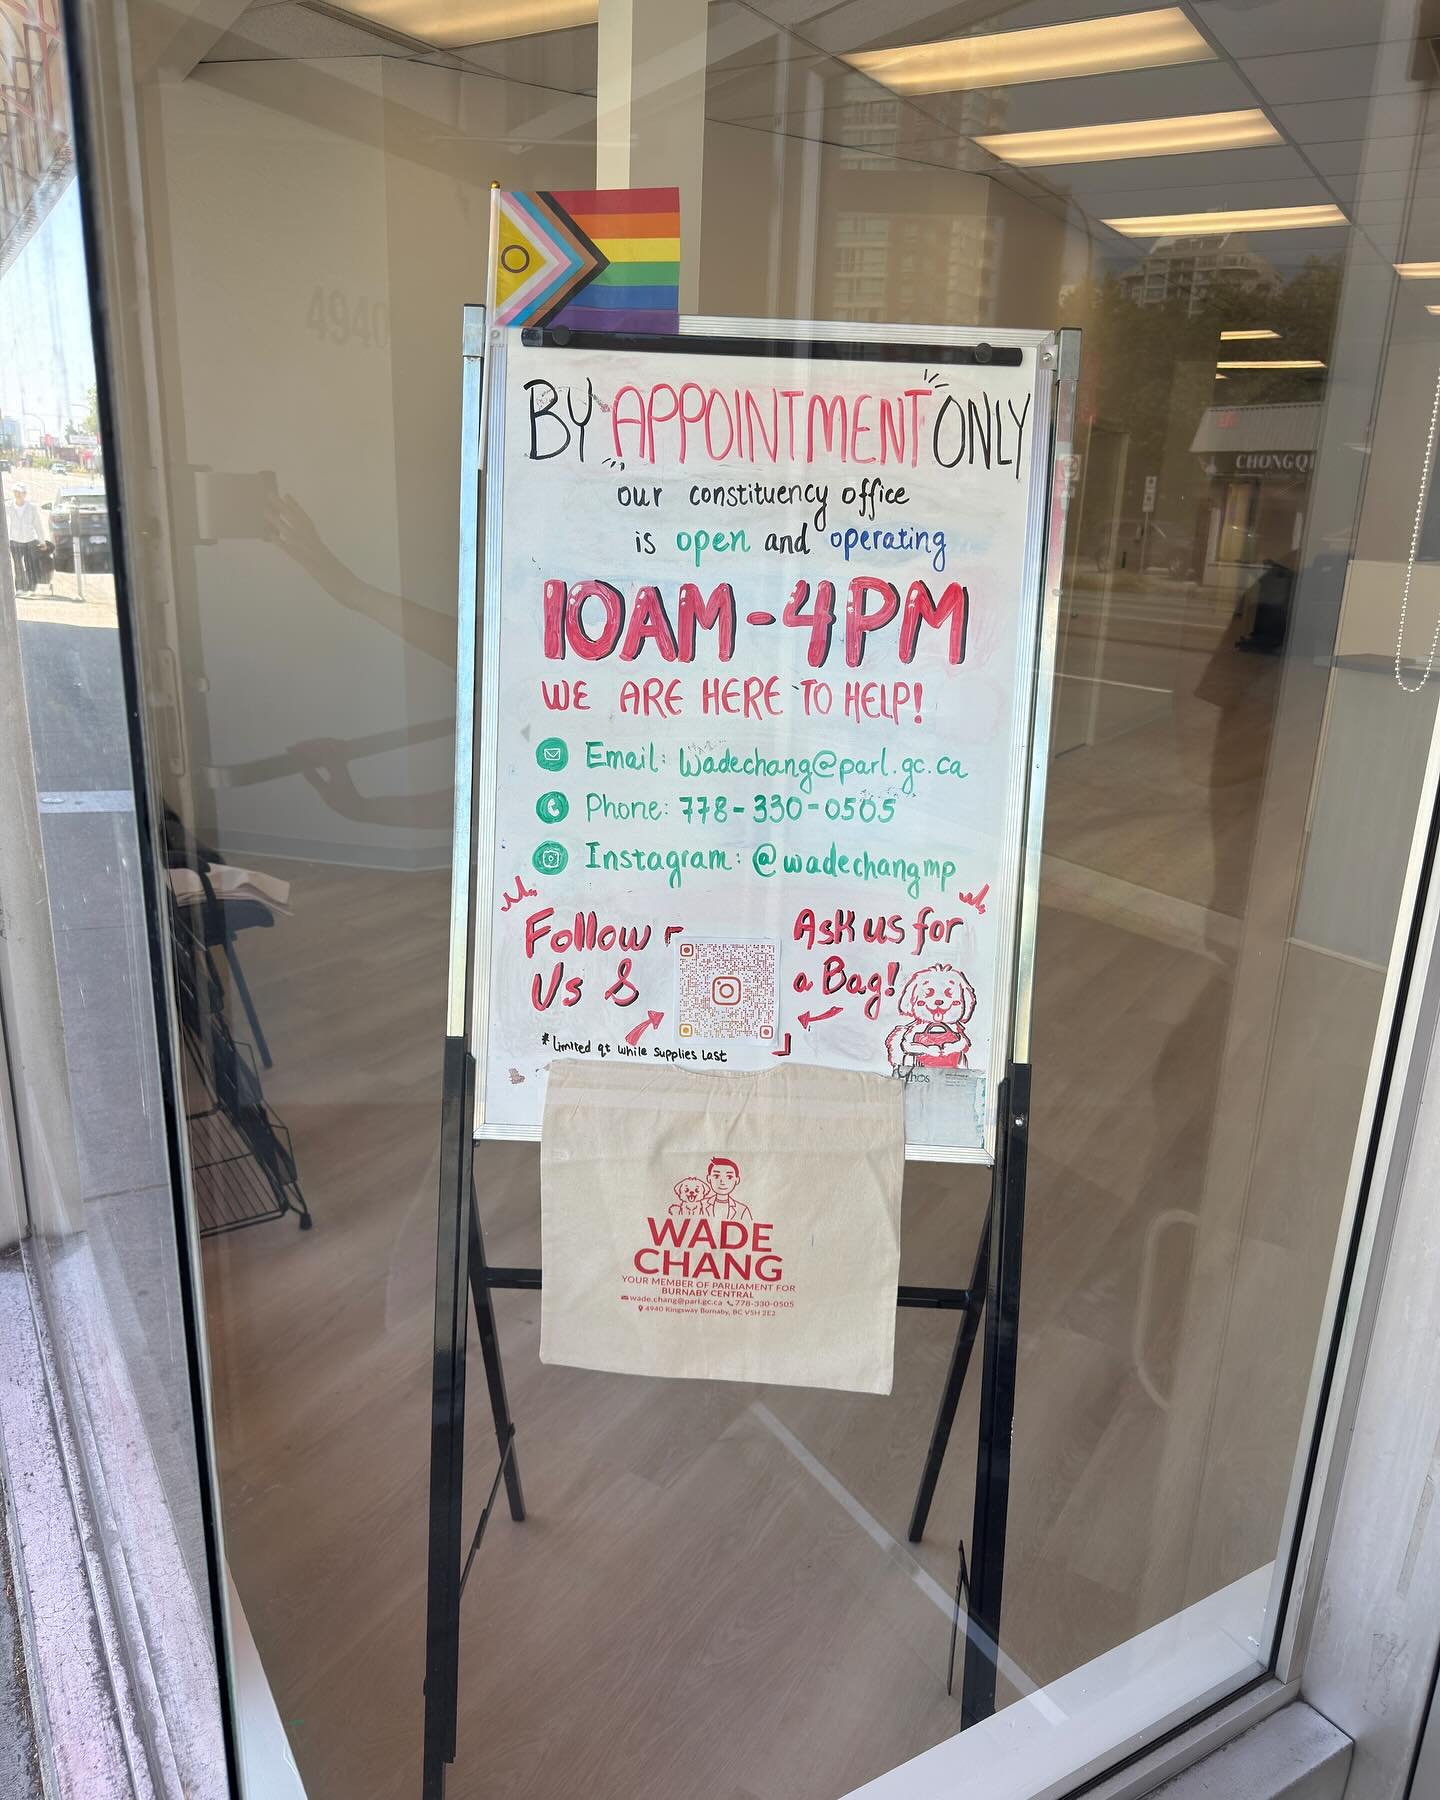 4940
CHONGQI
BY APPOINTMENT ONLY
our constituency office
is open and operating
10AM-4PM
WE ARE HERE TO HELP!
Email: wadechang@parl.gc.ca
Phone: 778-330-0505
Instagram: @wadechangmp
Follow
Us &
Ask us for
a Bag!
*Limited qt while supplies Last
WADE
CHANG
YOUR MEMBER OF PARLIAMENT FOR
BURNABY CENTRAL
wade.chang@parl.gc.ca 778-330-0505
4940 Kingsway Burnaby, BC V5H 2E2